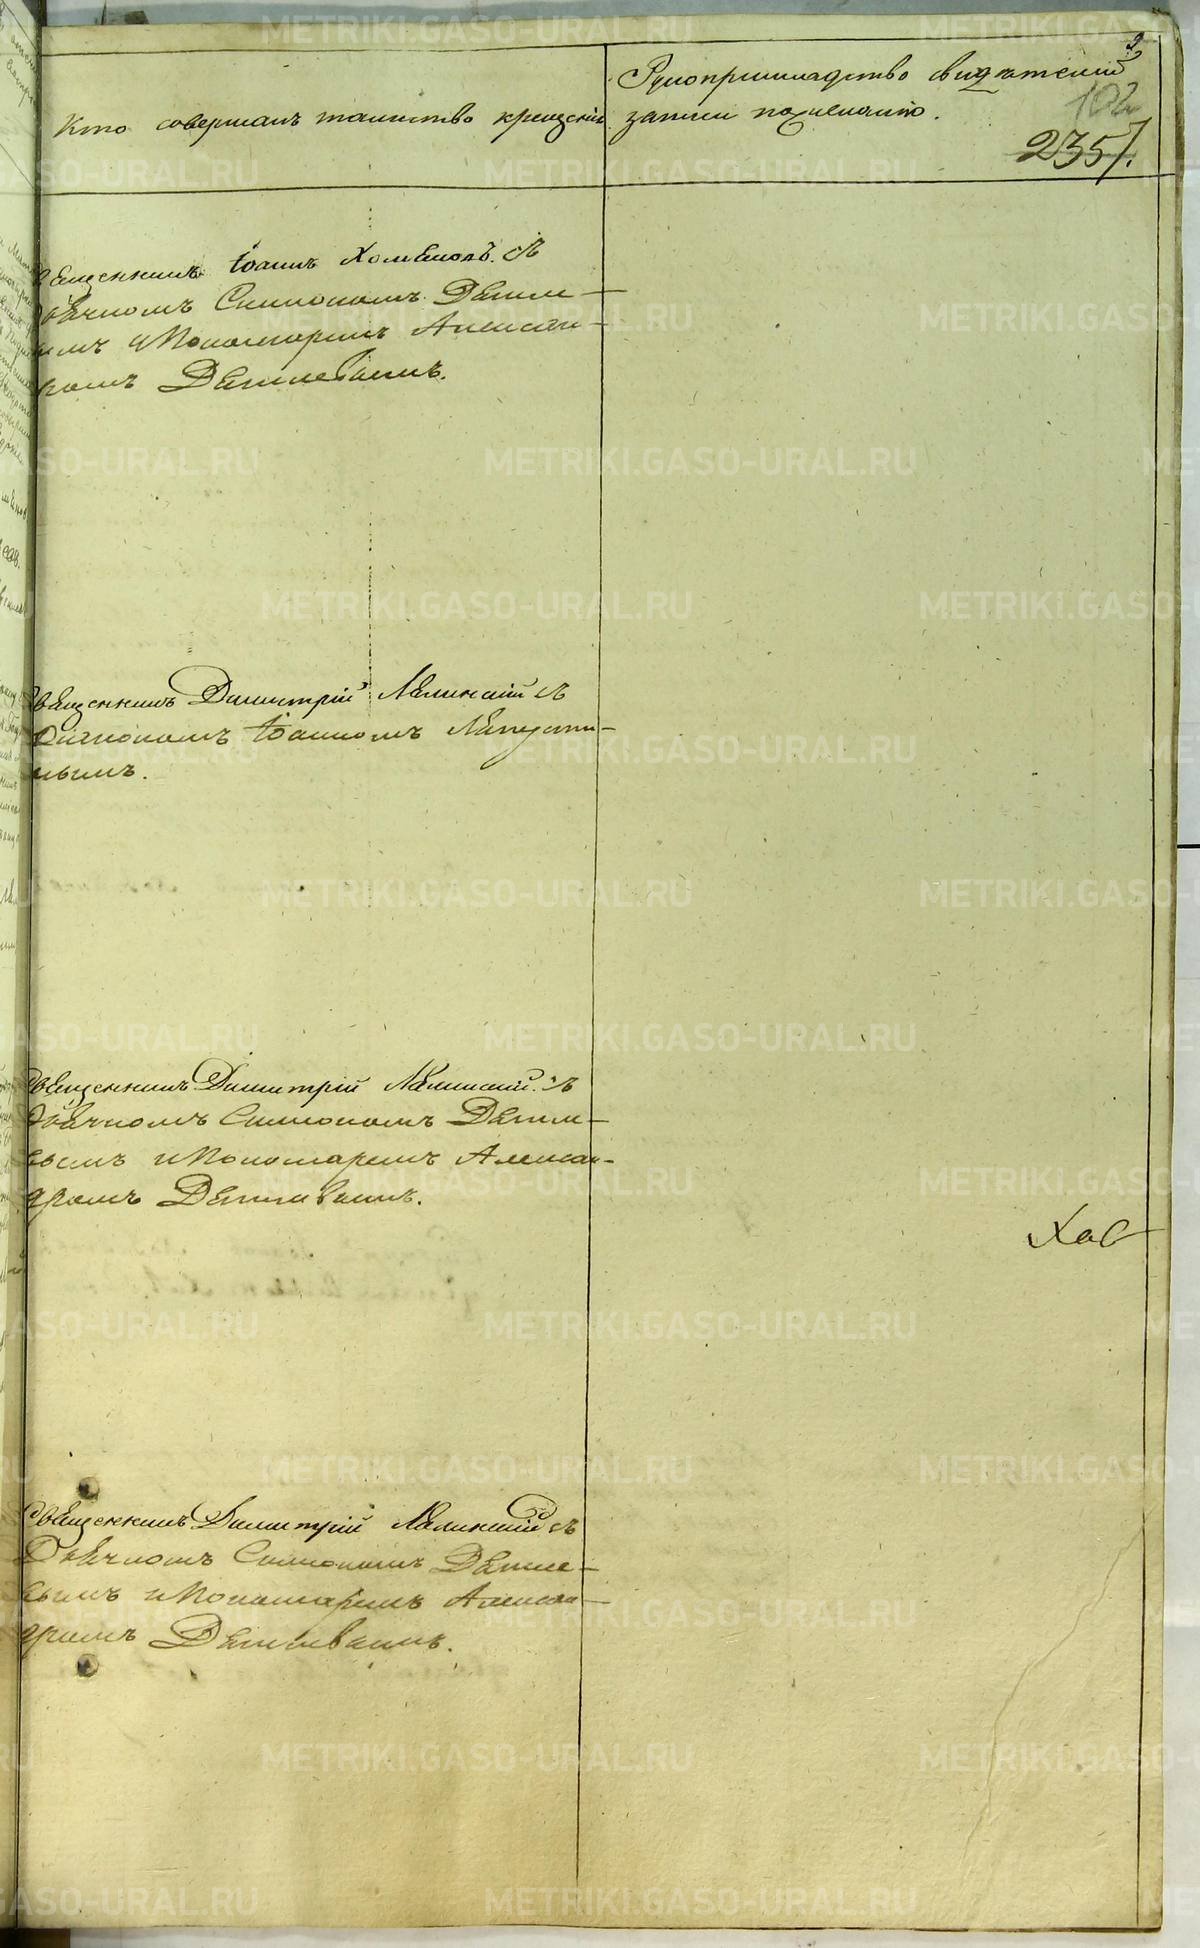 Кто совершалъ таинство крещенiя
Рукоприкладство свидѣтелей
записи по желанiю.
2
102
235/.
Священникъ Iоаннъ Хомяковъ съ
Дьячкомъ Симеономъ Дягиле-
вымъ и Пономаремъ Алексан-
дромъ Дягилевымъ.
Священникъ Димитрiй съ
Дiакономъ Iоанномъ Лапути-
нымъ.
Священникъ Димитрiй съ
Дьячкомъ Симеономъ Дягиле-
вымъ и Пономаремъ Алексан-
дромъ Дягилевымъ.
Хав
Священникъ Димитрiй съ
Дьячкомъ Симеономъ Дягиле-
вымъ и Пономаремъ Алексан-
дромъ Дягилевымъ.
METRIKI.GASO-URAL.RU